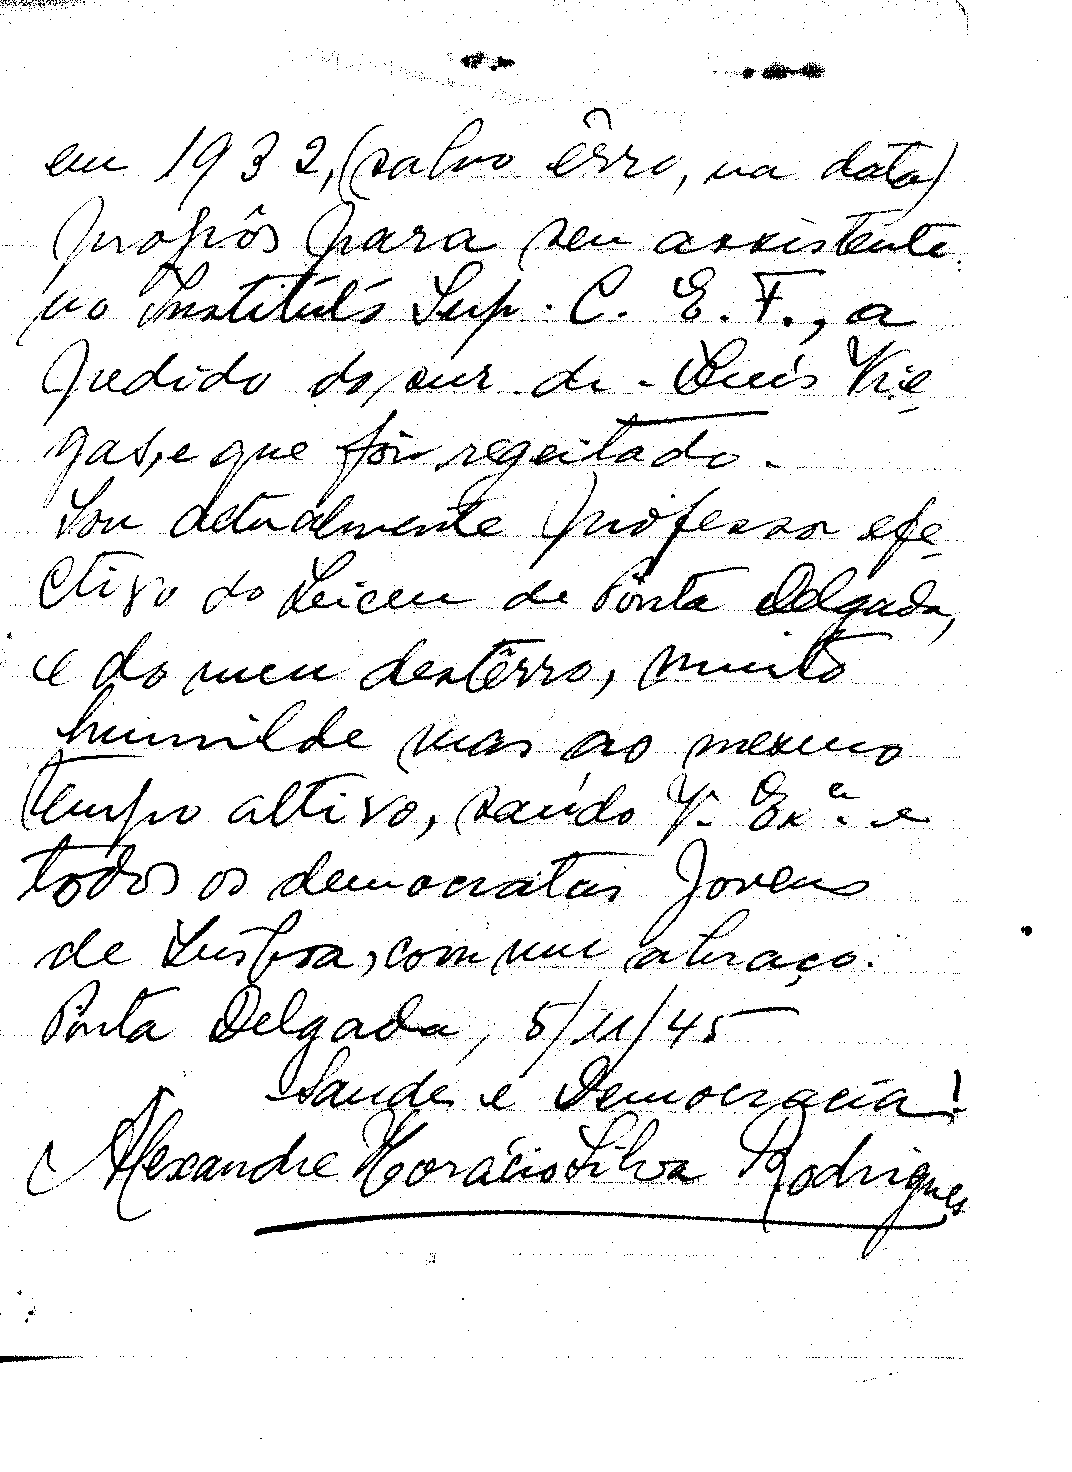 em 1932, (salvo êrro, na data)
propôs para seu assistente
no Instituto Sup. C. E. F., a
pedido do sur. dr. Luís Vie-
gas, e que foi regeitado.
Sou actualmente professor efe-
ctivo do Liceu de Ponta Delgada,
e do meu destêrro, muito
humilde mas ao mesmo
tempo altivo, saúdo V. Ex.ª e
todos os democratas Jovens
de Lisboa, com um abraço.
Ponta Delgada, 5/11/45
Saude e Democracia!
Alexandre Horácio Silva Rodrigues